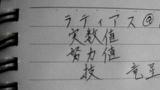 ラティアス@
実数値
努力値
技 竜星